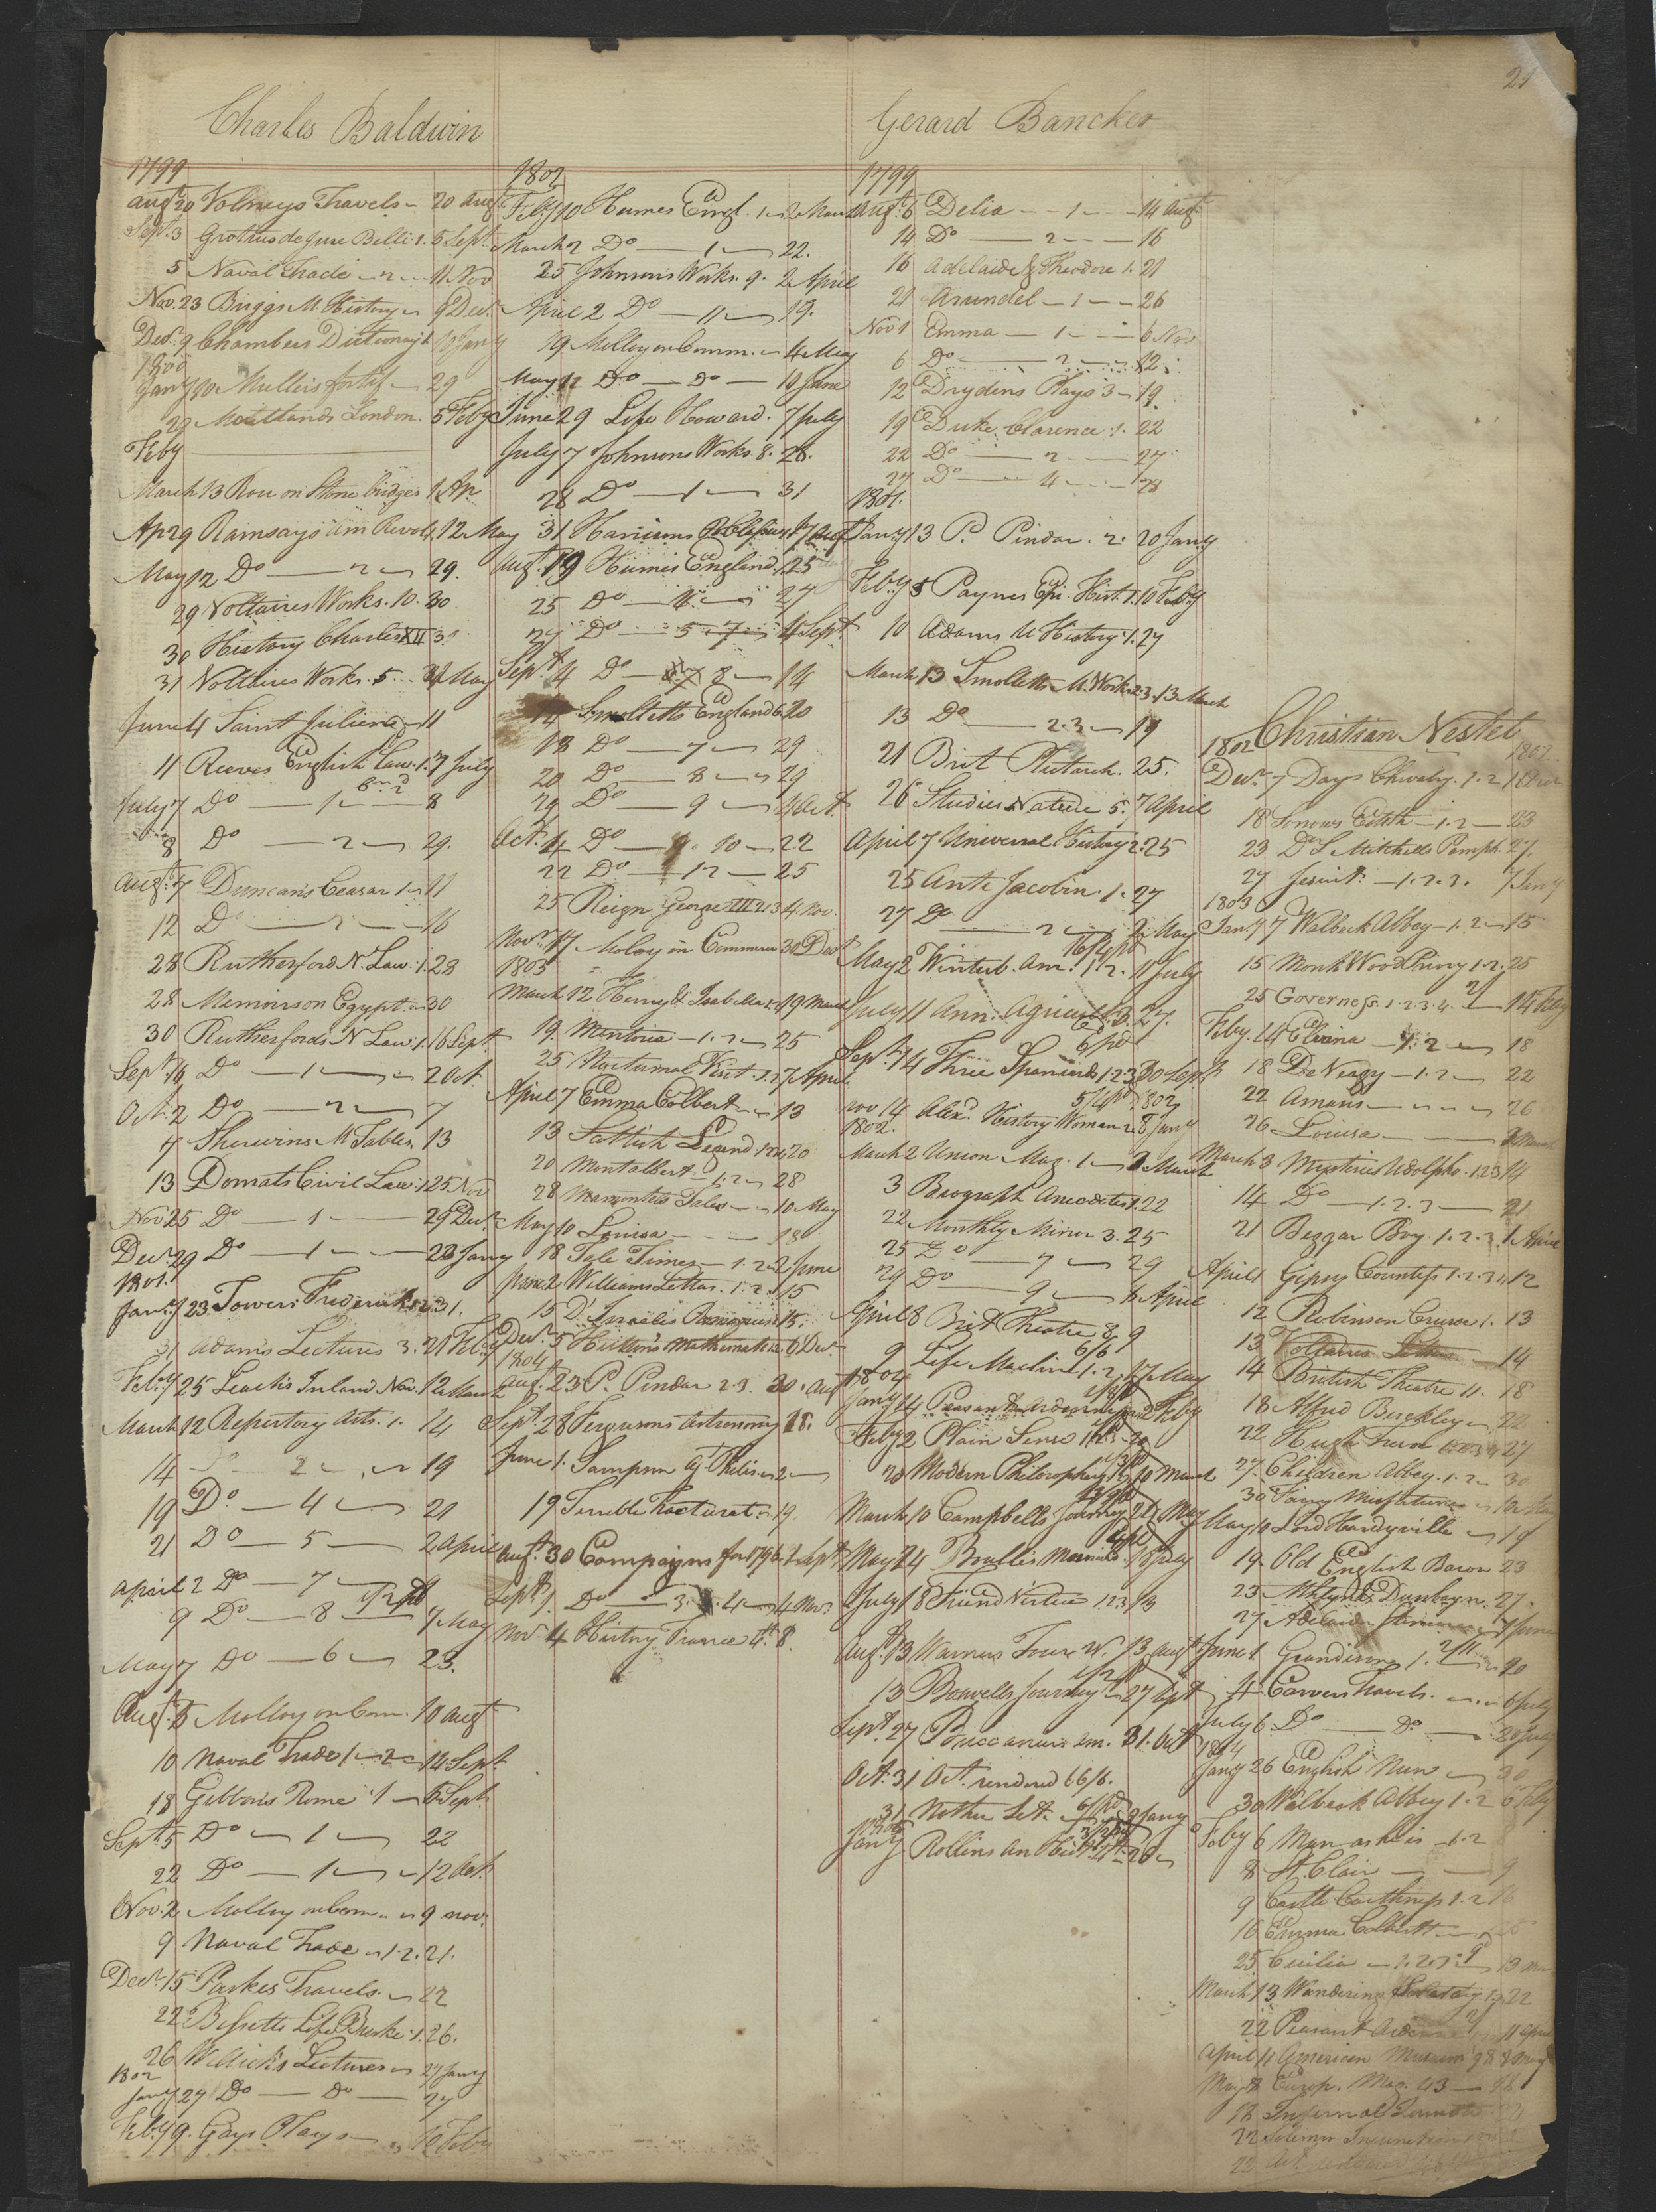 21
Charles Baldwin
1799
Augt 20 Volneys Travels 20 Augt
Sept. 3 Grotius de Jure Belli 1. 5 Sept.
5 Naval Trade 2 11 Nov
Nov. 23 Briggs M. History 9 Decr.
Decr. 9 Chambers Dictionary 1 10 Jany
1800
Jany 10 Mullers fortif 29
29 Maitlands London. 5 Feby
Feby
March 13 Rou on Stone bridges 1 Ap
Ap 29 Ramsays Am Revol. 1. 12 May
May 12 Do 2 29.
29 Voltaires Works. 10. 30
30 History Charles XII 31
31 Voltaires Works. 5 May
June 4 Saint Juliene 11
11 Reeves English Law. 1. 7 July
July 7 Do 1 8
8 Do 2 29.
Augt. 7 Duncans Ceasar 1 11
12 Do 2 16
28 Rutherford N. Law. 1. 28
28 Memoirs on Egypt 30
30 Rutherfords N Law. 1. 16 Sept.
Sept 16 Do 1 2 Oct.
Oct. 2 Do 2 7
7 Sherwins M Tables. 13
13 Domats Civil Law. 1 25 Nov
Nov. 25 Do 1 29 Decr.
Decr. 29 Do 1 23 Jany
1801.
Jany 23 Towers Frederick 1.2. 31.
31 Adams Lectures 3. 21 Feby
Feby 25 Leach's Inland Nav. 12 March
March 12 Repertory Arts. 1. 14
14 Do 2 19
19 Do 4 21
21 Do 5 2 April
April 2 Do 7 9
9 Do 8 7 May
May 7 Do 6 23.
Augt. 5 Molloy on Com. 10 Augt
10 Naval Trade 1 2 14 Sept.
18 Gibbons Rome 1 5 Sept.
Sept. 5 Do 1 22
22 Do 1 12 Oct.
Nov. 2 Molloy on Com 9 Nov.
9 Naval Trade 1.2. 21.
Decr. 15 Parkes Travels. 22
22 Bissetts Life Burke 1. 26.
26 Willich's Lectures 27 Jany
1802
Jany 27 Do Do 27
Feby 9. Gays Plays 10 Feby
1802
Feby 10 Humes Engl. 1 2 March
March 2 Do 1 22.
25 Johnsons Works. 9. 2 April
April 2 Do 11 19.
19 Molloy on Comm. 4 May
May 12 Do Do 10 June
June 29 Life Howard. 7 July
July 7 Johnsons Works 8. 28.
28 Do 1 31
31 Harrisons 17 Augt
Augt. 19 Humes England. 1. 25
25 Do 4 27
27 Do 5 7 4 Sept
Sept. 4 Do 8 14
14 Smolletts England 6. 20
18 Do 7 29
20 Do 8 29
29 Do 9 4 Oct.
Oct. 4 Do 9. 10 22
22 Do 12 25
25 Reign George III 2.3 4 Nov.
Novr. 17 Moloy on Commerce 30 Decr
1803
March 12 Henry & Isabella 1.2 19 March
19. Mentoria 1.2 25
25 Nocturnal Visit. 1.2 7 April
April 7 Emma Colbert 13
13 Scottish Legend 1.2 20
20 Montalbert 1.2 28
28 Marmontels Tales 10 May
May 10 Louisa 18
18 Tale Times 1. 2 2 June
June 2 Williams Letters. 1. 2. 15
15 D'Israelis Romances 15.
Decr. 5 Huttons Mathematics 6 Decr.
1804
Augt. 23 P. Pindar 2.3. 30. Augt
Sept. 28 Fergusons Astronomy 28.
June 1. Sampson 2
19 Terrible Tractorat. 19.
Augt. 30 Campaigns for 1796. 1 Sept
Sept. 1 Do 3. 4 4 Nov.
Nov. 4 History France 4to 8.
Gerard Bancker
1799
Augt. 6 Delia 1 14 Augt
14 Do 2 16
16 Adelaide & Theodore 1. 21
21 Arundel 1 26
Nov 1 Emma 1 6 Nov
6 Do 2 12
12 Drydens Plays 3 19.
19 Duke Clarence 1. 22
22 Do 2 27
27 Do 4 28
1801.
Jany 13 P. Pindar. 2. 20 Jany
Feby 5 Paynes Epi. Hist. 1. 10 Feby
10 Adams U. History 1. 27
March 13 Smolletts M. Works 2.3. 13 March
13 Do 2.3 19
21 Brit Plutarch. 25.
26 Studies Nature 5. 7 April
April 7 Universal History 2. 25
25 Anti Jacobin. 1. 27
27 Do 2 2 May
May 2 Winterb. Am. 1 2. 11 July
July 11 Ann. Agricult. 3. 27.
Sept. 14 Three Spaniards 1.2.3 30 Sept
Nov 14 Alexr. History Woman 2 8 Jany
1802.
March 2 Union Mag. 1 3 March
3 Biograph Anecdotes 1. 22
22 Monthly Mirror 3. 25
25 Do 7 29
29 Do 9 8 April
April 8 Brit Theatre 8. 9
9 Life Machine 1.2. 17 May
1804
Jany 14 Peasant Ardennes 2 Feby
Feby 2 Plain Sense 1.2.3 20
20 Modern Philosophers 10 March
March 10 Campbells Journey 24 May
May 24 Bouilles Memoirs 18 July
July 18 Friend Virtue 1.2.3 13
Augt. 13 Warners Tour W. 13 Augt
13 Boswells Journey 27 Sept
Sept. 27 Buccaniers Am. 31. Oct
Oct. 31 Act. rendered 66/6.
31 Mother Let.
Jany Rollins An Hist 20
Christian Nestel
1802 1802
Decr. 7 Days Chivalry. 1. 2
18 Sorrows Edith 1. 2 23
23 Dr S Mitchells Pamph. 27.
27 Jesuit. 1. 2. 3. 7 Jany
1803
Jany 7 Walbeck Abbey 1. 2 15
15 Monk Wood Priory 1. 2. 25
25 Governess. 1. 2. 3. 4. 14 Feby
Feby. 14 Elvina 1. 2 18
18 De Neazy 1. 2 22
22 Amans 26
26 Louisa 3 March
March 3 Mysteries Udolpho. 1.2.3 14
14 Do 1. 2. 3 21
21 Beggar Boy. 1. 2. 3. 1 April
April 1 Gipsy Countess 1. 2. 3. 4. 12
12 Robinson Crusoe 1. 13
13 Voltaires Letters 14
14 British Theatre 11. 18
18 Alfred Berekley 22
22 Hugh Trevor 1.2.3.4 27
27. Children Abbey. 1. 2 30
30 Fairy Misfortunes
May 10 Lord Hardyville 19
19. Old English Baron 23
23 Athlyn & Dunbayne. 27.
27 Adelaide 1 June
June 1 Grandison 1. 20
4 Carvers Travels. 6 July
July 6 Do Do 20 July
1804
Jany 26 English Nun 30
30 Walbeck Abbey 1. 2 6 Feby
Feby 6 Man as he is 1. 2 8
8 St. Clair 9
9 Castle Caithness 1. 2 16
16 Emma Colbert
25 Cecilia 1. 2. 3 13 Mar
March 13 Wandering 22
22 Peasant Ardennes 11 April
April 11 American Museum 9 8 8 May
May 8 Europ. Mag. 43
12 Infernal
22 Solemn Injunction
22 Act rendered